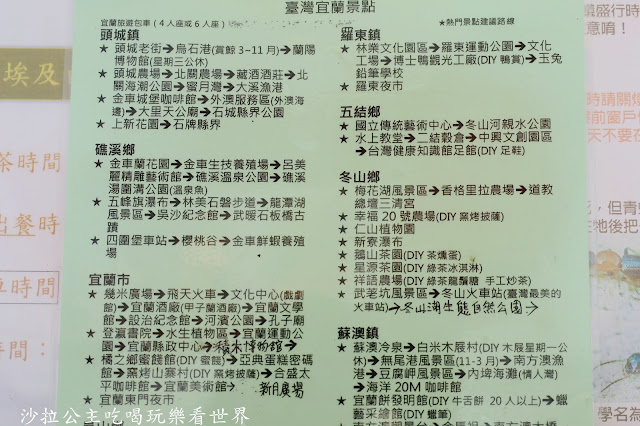 臺灣宜蘭景點
宜蘭旅遊包車(4人座或6人座)
★熱門景點建議路線
頭城鎮
★ 頭城老街→烏石港(賞鯨3~11月)→蘭陽
博物館(星期三公休)
★ 頭城農場→北關農場→藏酒酒莊→北
關海潮公園→蜜月灣→大溪漁港
★ 金車城堡咖啡館→外澳服務區(外澳海
邊)→大里天公廟→石城縣界公園
★ 上新花園→石牌縣界
礁溪鄉
★ 金車蘭花園→金車生技養殖場→呂美
麗精雕藝術館→礁溪溫泉公園→礁溪
湯圍溝公園(溫泉魚)
★ 五峰旗瀑布→林美石磐步道→龍潭湖
風景區→吳沙紀念館→武暖石板橋古
蹟
★ 四圍堡車站→櫻桃谷→金車鮮蝦養殖
場
宜蘭市
★ 幾米廣場→飛天火車→文化中心(戲劇
館)→宜蘭酒廠(甲子蘭酒廠)→宜蘭文學
館→設治紀念館→河濱公園→孔子廟
★ 登瀛書院→水生植物區→宜蘭運動公
園→宜蘭縣政中心→積木博物館→
★ 橘之鄉蜜餞館(DIY 蜜餞)→亞典蛋糕密碼
館→窯烤山寨村(DIY 窯烤披薩)→合盛太
平咖啡館→宜蘭美術館→ 新月廣場
★ 宜蘭東門夜市
羅東鎮
★ 林業文化園區→羅東運動公園→文化
工場→博士鴨觀光工廠(DIY 鴨賞)→玉兔
鉛筆學校
★ 羅東夜市
五結鄉
★ 國立傳統藝術中心→冬山河親水公園
★ 水上教堂→二結穀倉→中興文創園區
→台灣健康知識館足館(DIY 足鞋)
冬山鄉
★ 梅花湖風景區→香格里拉農場→道教
總壇三清宮
★ 幸福 20 號農場(DIY 窯烤披薩)
★ 仁山植物園
★ 新寮瀑布
★ 鵝山茶園(DIY 茶燻蛋)
★ 星源茶園(DIY 綠茶冰淇淋)
★ 祥語農場(DIY 綠茶龍鬚糖 手工炒茶)
★ 武荖坑風景區→冬山火車站(臺灣最美的
火車站)→冬山湖生態自然公園→
蘇澳鎮
★ 蘇澳冷泉→白米木屐村(DIY 木屐星期一公
休)→無尾港風景區(11-3月)→南方澳漁
港→豆腐岬風景區→內埤海灘(情人灣)
→海洋 20M 咖啡館
★ 宜蘭餅發明館(DIY 牛舌餅 20 人以上)→蠟
藝采繪館(DIY 蠟筆)
埃及
茶時間
出餐時
車時間
間：
盛行時
意唷！
時請關
前窗戶
天不要在
，但青
在牠後把
學名為
沙拉公主吃喝玩樂看世界